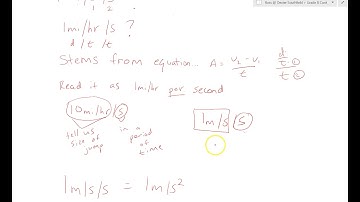 1mi/hr/s ?
d / t / t
Stems from equation... A = V₂ - V₁ / t   d / t ①
t ②
Read it as 1mi/hr per second
10mi/hr/s   1m/s s
tell us size of jump   in a period of time
1m/s/s = 1m/s²